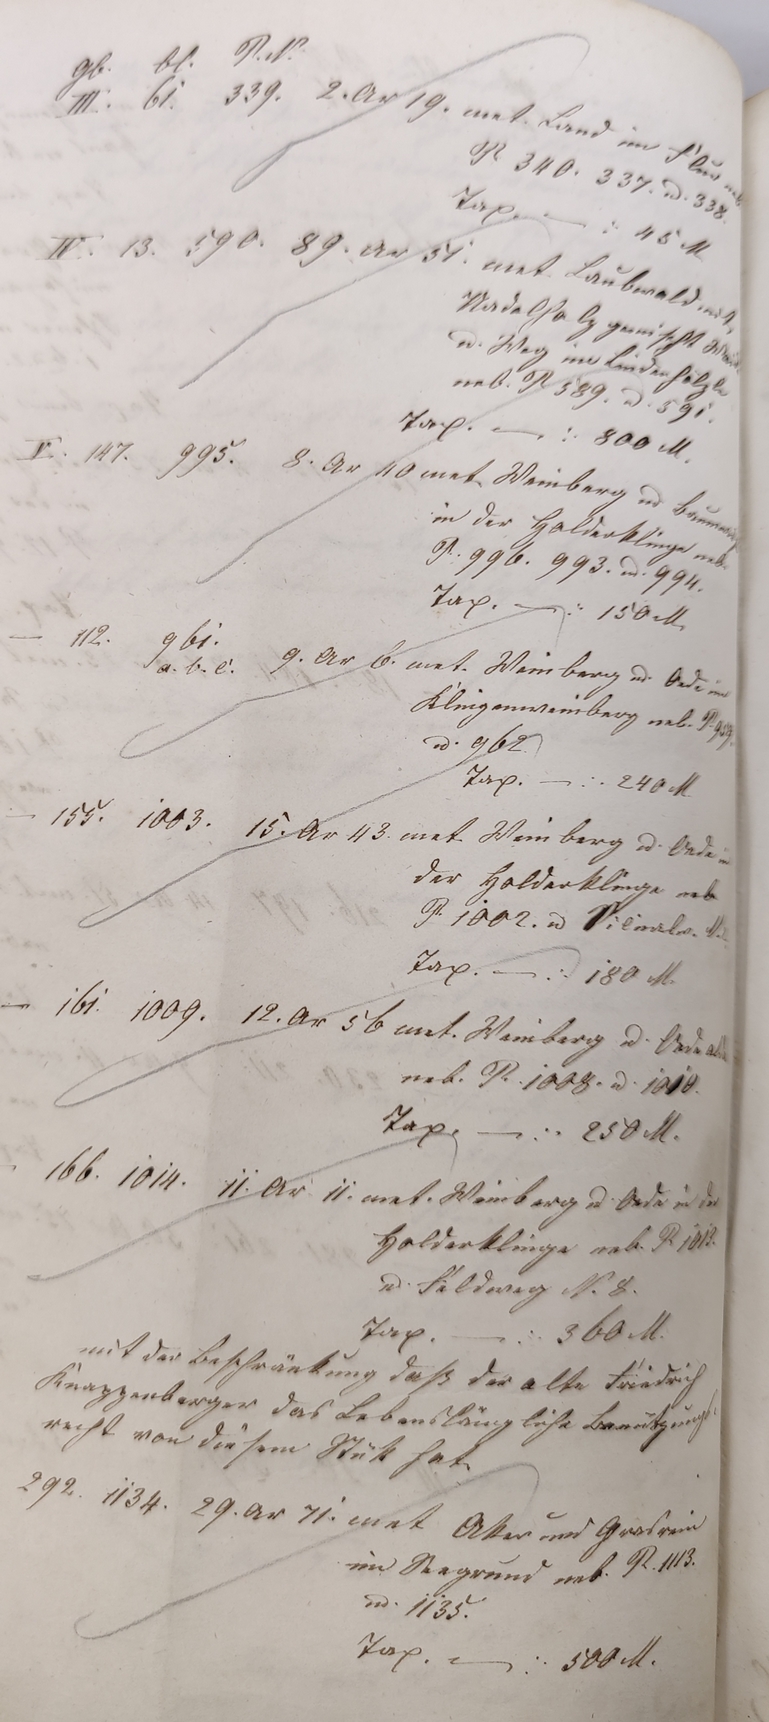 gb. bl. P.N.
III. 61. 339. 2. Ar 19. met. Land im
P. 340. 337. u. 338.
Tax. — : 45 M
IV. 13. 590. 89. Ar 51. met. Laubwald mit
Nadelholz gemischt
u. Weg im Lindenhölzle
neb. P. 589. u. 591.
Tax. — : 800 M.
V. 147. 995. 8. Ar 40 met. Weinberg u
in der Holderklinge neb.
P. 996. 993. u. 994.
Tax. — : 150 M.
— 112. 961. 9. Ar 6. met. Weinberg u. Oede im
a. b. c.
Klingenweinberg neb. P. 959.
u. 962
Tax. — : 240 M
— 155. 1003. 15. Ar 43. met. Weinberg u. Oede in
der Holderklinge neb
P. 1002. u Vicinalw. N.
Tax. — : 180 M.
— 161. 1009. 12. Ar 56 met. Weinberg u. Oede
neb. P. 1008. u. 1010.
Tax. — : 250 M.
166. 1014. 11. Ar 11. met. Weinberg u Oede in der
Holderklinge neb. P. 1013.
u. Feldweg N. 8.
Tax. — : 360 M.
mit der Beschränkung daß der alte Friedrich
Knappenberger das Lebenslängliche Benützungs-
recht von diesem Stük hat
292. 1134. 29. Ar 71. met Aker und Grasrain
im Seegrund neb. P. 1113.
u. 1135.
Tax. — : 500 M.